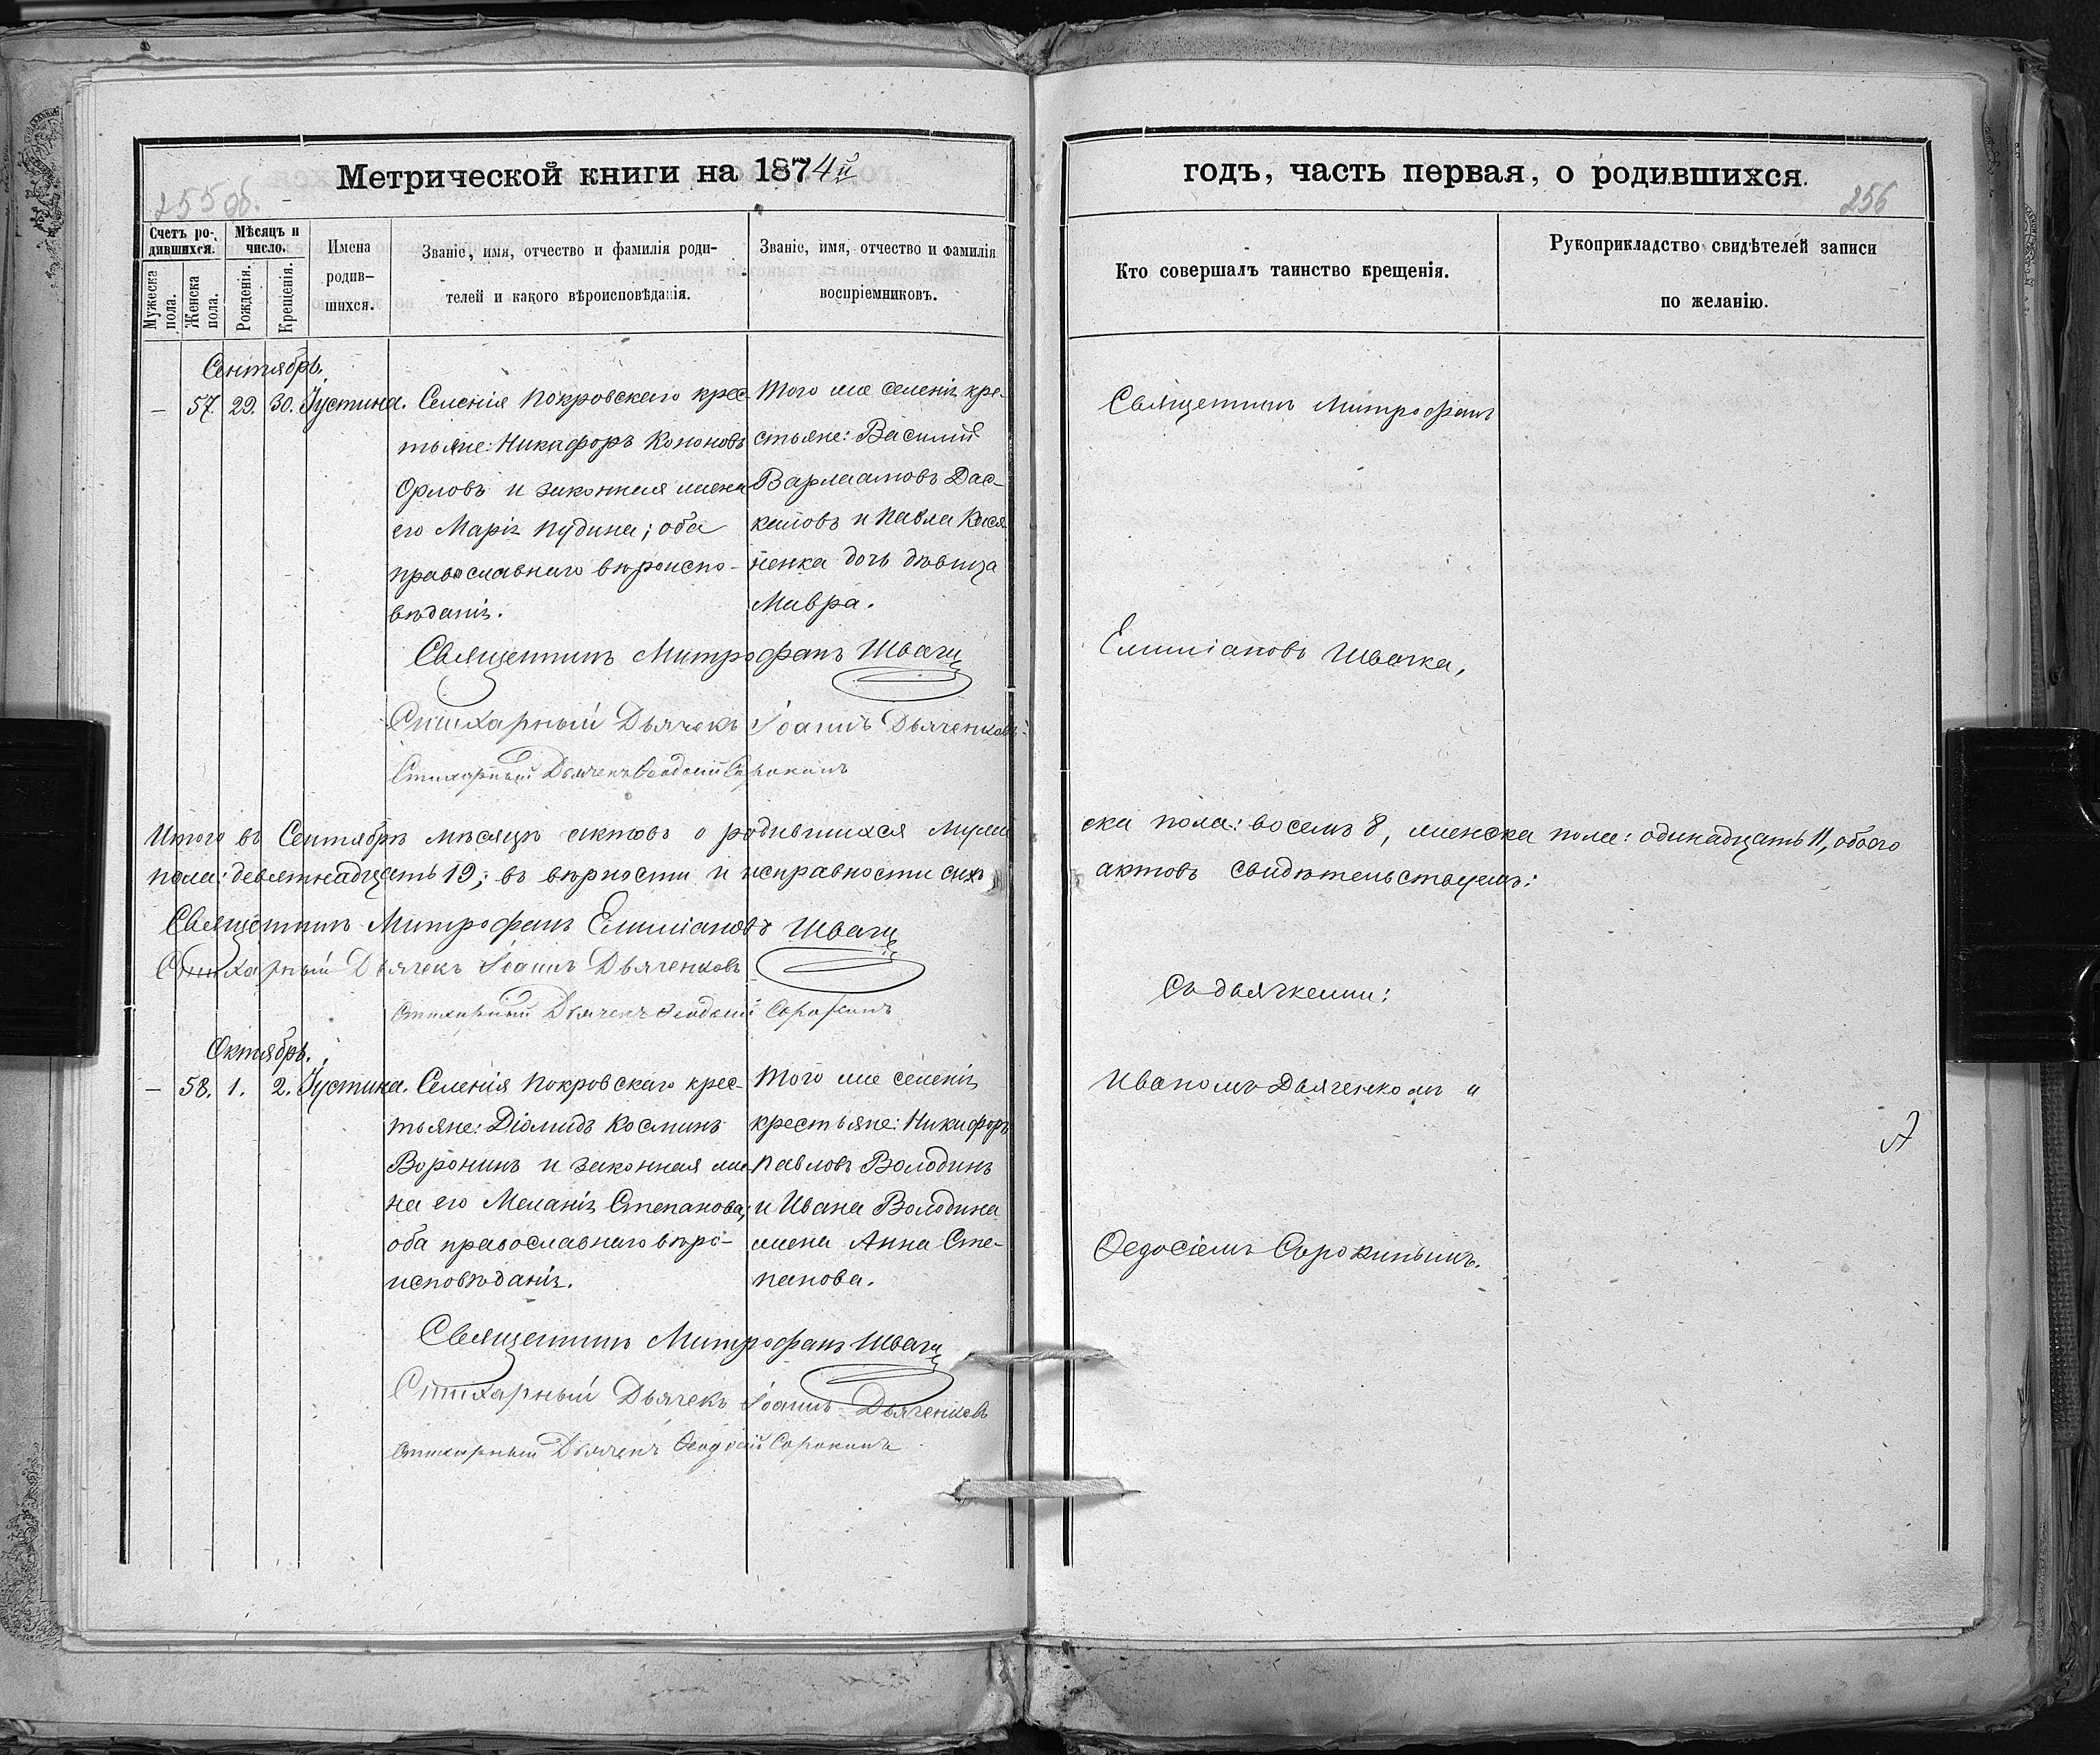 Метрической книги на 1874й
255 об.
Счетъ ро-
дившихся.
Мужеска
пола.
Женска
пола.
Мѣсяцъ и
число.
Рожденія.
Крещенія.
Имена
родив-
шихся.
Званіе, имя, отчество и фамилія роди-
телей и какого вѣроисповѣданія.
Званіе, имя, отчество и фамилія
воспріемниковъ.
Сентябрь.
— 57. 29. 30. Іустина.
Селенія Покровскаго крес-
тьяне: Никафоръ Кононовъ
Орловъ и законная жена
его Марія Нудина; оба
православнаго вѣроиспо-
вѣданія.
Того же селенія кре-
стьяне: Василій
Варлаамовъ Дас-
каловъ и Павла Кася-
ненка дочь дѣвица
Мавра.
Священникъ Митрофанъ Швачка
Стихарный Дьячекъ Іоаннъ Дьяченковъ
Стихарный Дьячекъ Ѳеодосій Сорокинъ
Итого въ Сентябрѣ мѣсяцѣ актовъ о родившихся муже
пола: девятнадцать 19; въ вѣрности и исправности сихъ
Священникъ Митрофанъ Емиліановъ Швачка
Стихарный Дьячекъ Іоаннъ Дьяченковъ
Стихарный Дьячекъ Ѳеодосій Сорокинъ
Октябрь.
— 58. 1. 2. Іустина.
Селенія Покровскаго крес-
тьяне: Діомидъ Косминъ
Воронинъ и законная же
на его Меланія Степанова;
оба православнаго вѣро-
исповѣданія.
Того же селенія
крестьяне: Никифоръ
Павловъ Володинъ
и Ивана Володина
жена Анна Сте-
панова.
Священникъ Митрофанъ Швачка
Стихарный Дьячекъ Іоаннъ Дьяченковъ
Стихарный Дьячекъ Ѳеодосій Сорокинъ
годъ, часть первая, о родившихся.
256
Кто совершалъ таинство крещенія.
Рукоприкладство свидѣтелей записи
по желанію.
Священникъ Митрофанъ
Емиліановъ Швачка,
ска пола: восемь 8, женска пола: одинадцать 11, обоего
актовъ свидѣтельствуемъ:
Съ дьячками:
Иваномъ Дьяченкомъ и
Ѳедосіемъ Сорокинымъ.